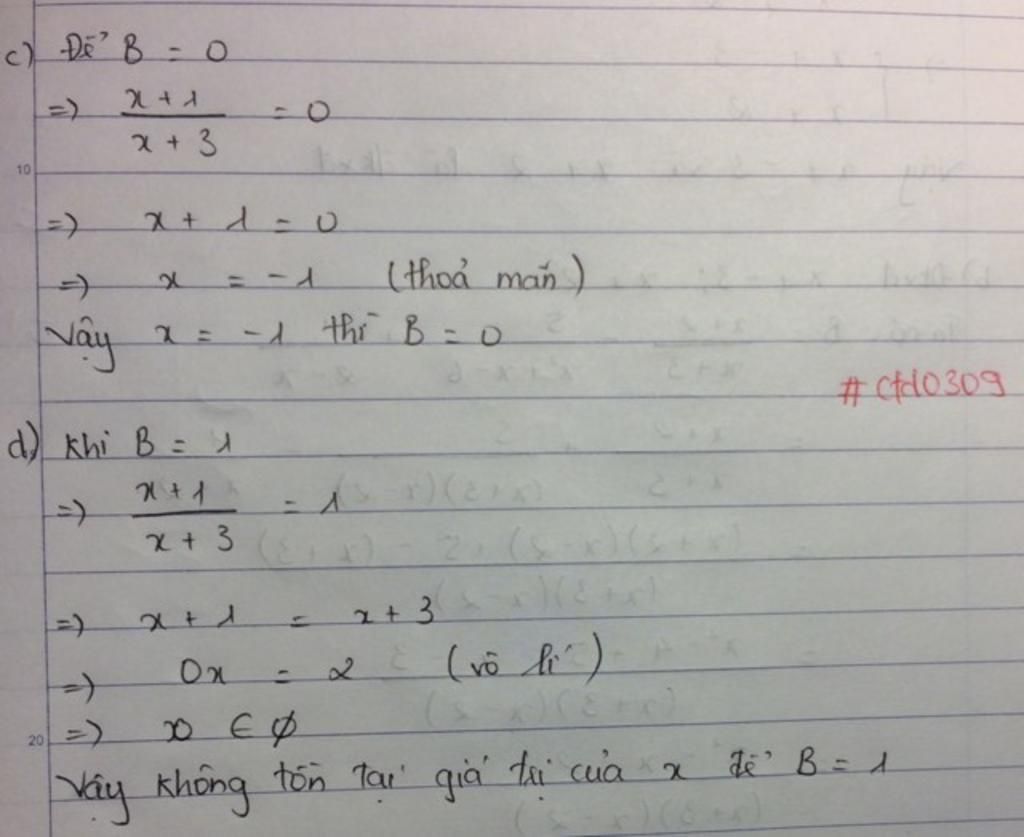 c) Để B = 0
=> x + 1 / x + 3 = 0
10
=> x + 1 = 0
=> x = -1 (thoả mãn)
Vậy x = -1 thì B = 0
# ctd0309
d) Khi B = 1
=> x + 1 / x + 3 = 1
=> x + 1 = x + 3
=> 0x = 2 (vô lí)
20
=> x ∈ ∅
Vậy không tồn tại giá trị của x để B = 1